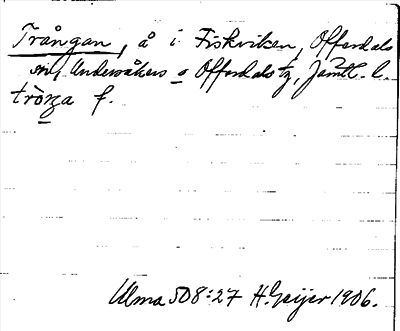 Trångan, å i Fiskviken, Offerdals
Undersåkers o Offerdals tg, Jämtl. l.
f.
Ulma 508:27 H. Geijer 1906.